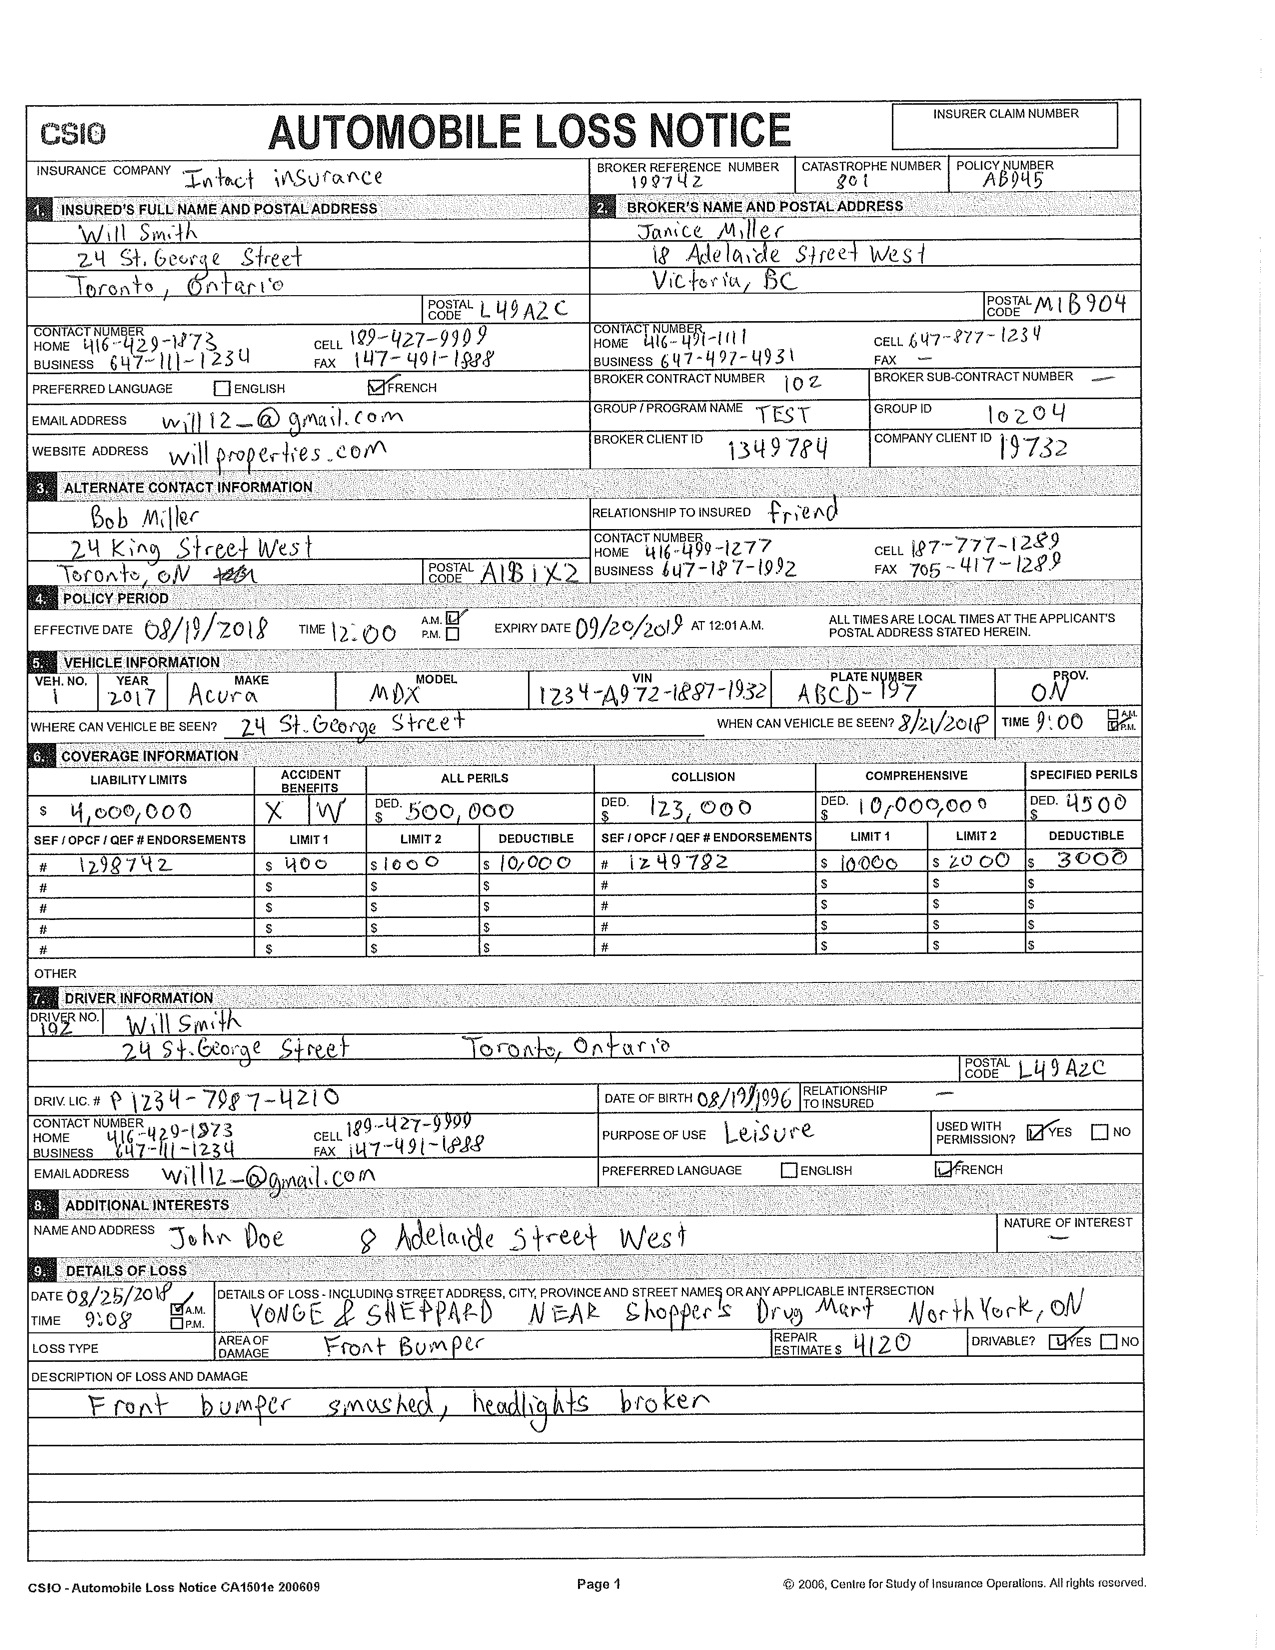 CSIO
AUTOMOBILE LOSS NOTICE
INSURER CLAIM NUMBER
INSURANCE COMPANY Intact insurance
BROKER REFERENCE NUMBER 198742
CATASTROPHE NUMBER 801
POLICY NUMBER AB945
1. INSURED'S FULL NAME AND POSTAL ADDRESS
Will Smith
24 St. George Street
Toronto, Ontario
POSTAL CODE L49A2C
CONTACT NUMBER
HOME 416-429-1873 CELL 189-427-9909
BUSINESS 647-111-1234 FAX 147-491-1888
PREFERRED LANGUAGE ENGLISH FRENCH
EMAIL ADDRESS will12_@gmail.com
WEBSITE ADDRESS willproperties.com
2. BROKER'S NAME AND POSTAL ADDRESS
Janice Miller
18 Adelaide Street West
Victoria, BC
POSTAL CODE M1B904
CONTACT NUMBER
HOME 416-491-1111 CELL 647-877-1234
BUSINESS 647-497-4931 FAX —
BROKER CONTRACT NUMBER 102 BROKER SUB-CONTRACT NUMBER —
GROUP / PROGRAM NAME TEST GROUP ID 10204
BROKER CLIENT ID 1349784 COMPANY CLIENT ID 19732
3. ALTERNATE CONTACT INFORMATION
Bob Miller
24 King Street West
Toronto, ON
POSTAL CODE A1B1X2
RELATIONSHIP TO INSURED friend
CONTACT NUMBER
HOME 416-499-1277 CELL 187-777-1289
BUSINESS 647-187-1992 FAX 705-417-1289
4. POLICY PERIOD
EFFECTIVE DATE 08/19/2018 TIME 12:00 A.M. P.M. EXPIRY DATE 09/20/2019 AT 12:01 A.M. ALL TIMES ARE LOCAL TIMES AT THE APPLICANT'S
POSTAL ADDRESS STATED HEREIN.
5. VEHICLE INFORMATION
VEH. NO. YEAR MAKE MODEL VIN PLATE NUMBER PROV.
1 2017 Acura MDX 1234-A972-1887-1932 ABCD-197 ON
WHERE CAN VEHICLE BE SEEN? 24 St. George Street WHEN CAN VEHICLE BE SEEN? 8/21/2018 TIME 9:00 A.M. P.M.
6. COVERAGE INFORMATION
LIABILITY LIMITS ACCIDENT BENEFITS ALL PERILS COLLISION COMPREHENSIVE SPECIFIED PERILS
$ 4,000,000 X W DED. $ 500,000 DED. $ 123,000 DED. $ 10,000,000 DED. $ 4500
SEF / OPCF / QEF # ENDORSEMENTS LIMIT 1 LIMIT 2 DEDUCTIBLE SEF / OPCF / QEF # ENDORSEMENTS LIMIT 1 LIMIT 2 DEDUCTIBLE
# 1298742 $ 400 $ 1000 $ 10,000 # 1249782 $ 10000 $ 2000 $ 3000
# $ $ $ # $ $ $
# $ $ $ # $ $ $
# $ $ $ # $ $ $
# $ $ $ # $ $ $
OTHER
7. DRIVER INFORMATION
DRIVER NO. 192 Will Smith
24 St. George Street Toronto, Ontario
POSTAL CODE L49A2C
DRIV. LIC. # P1234-7987-4210 DATE OF BIRTH 08/19/1996 RELATIONSHIP TO INSURED —
CONTACT NUMBER
HOME 416-429-1873 CELL 189-427-9909
BUSINESS 647-111-1234 FAX 147-491-1888
PURPOSE OF USE Leisure USED WITH PERMISSION? YES NO
EMAIL ADDRESS will12_@gmail.com PREFERRED LANGUAGE ENGLISH FRENCH
8. ADDITIONAL INTERESTS
NAME AND ADDRESS John Doe 8 Adelaide Street West NATURE OF INTEREST —
9. DETAILS OF LOSS
DATE 08/25/2018 DETAILS OF LOSS - INCLUDING STREET ADDRESS, CITY, PROVINCE AND STREET NAMES OR ANY APPLICABLE INTERSECTION
TIME 9:08 A.M. P.M. YONGE & SHEPPARD NEAR Shopper's Drug Mart North York, ON
LOSS TYPE AREA OF DAMAGE Front Bumper REPAIR ESTIMATE $ 4120 DRIVABLE? YES NO
DESCRIPTION OF LOSS AND DAMAGE
Front bumper smashed, headlights broken
CSIO - Automobile Loss Notice CA1501e 200609 Page 1 © 2006, Centre for Study of Insurance Operations. All rights reserved.